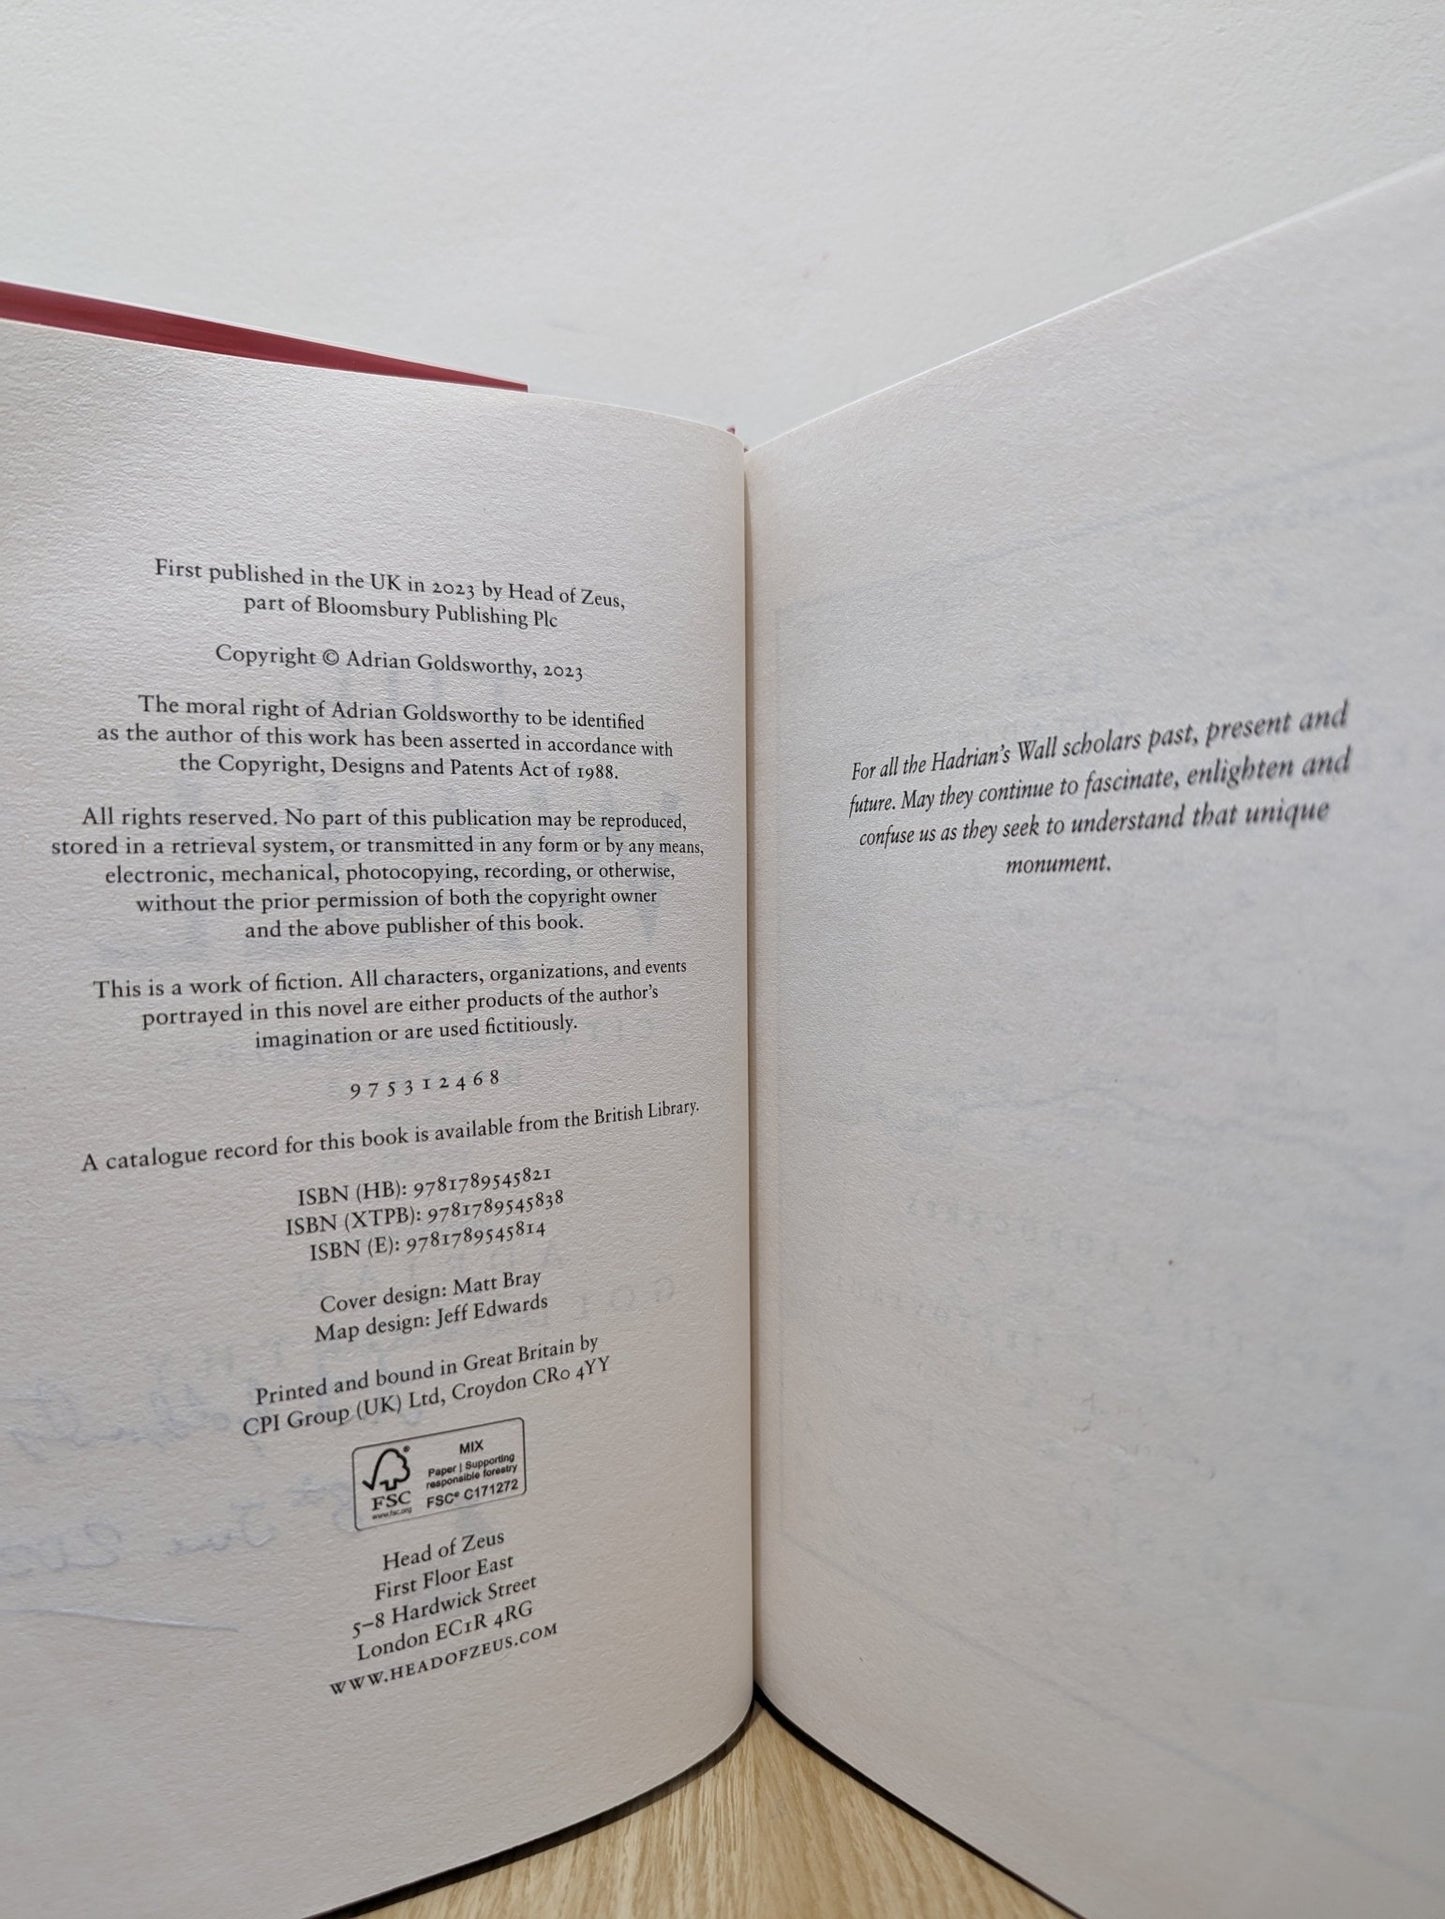 First published in the UK in 2023 by Head of Zeus,
part of Bloomsbury Publishing Plc
Copyright © Adrian Goldsworthy, 2023
The moral right of Adrian Goldsworthy to be identified
as the author of this work has been asserted in accordance with
the Copyright, Designs and Patents Act of 1988.
All rights reserved. No part of this publication may be reproduced,
stored in a retrieval system, or transmitted in any form or by any means,
electronic, mechanical, photocopying, recording, or otherwise,
without the prior permission of both the copyright owner
and the above publisher of this book.
This is a work of fiction. All characters, organizations, and events
portrayed in this novel are either products of the author's
imagination or are used fictitiously.
9 7 5 3 1 2 4 6 8
A catalogue record for this book is available from the British Library.
ISBN (HB): 9781789545821
ISBN (XTPB): 9781789545838
ISBN (E): 9781789545814
Cover design: Matt Bray
Map design: Jeff Edwards
Printed and bound in Great Britain by
CPI Group (UK) Ltd, Croydon CR0 4YY
MIX
Paper | Supporting
responsible forestry
FSC® C171272
FSC
www.fsc.org
Head of Zeus
First Floor East
5–8 Hardwick Street
London EC1R 4RG
WWW.HEADOFZEUS.COM
For all the Hadrian's Wall scholars past, present and
future. May they continue to fascinate, enlighten and
confuse us as they seek to understand that unique
monument.